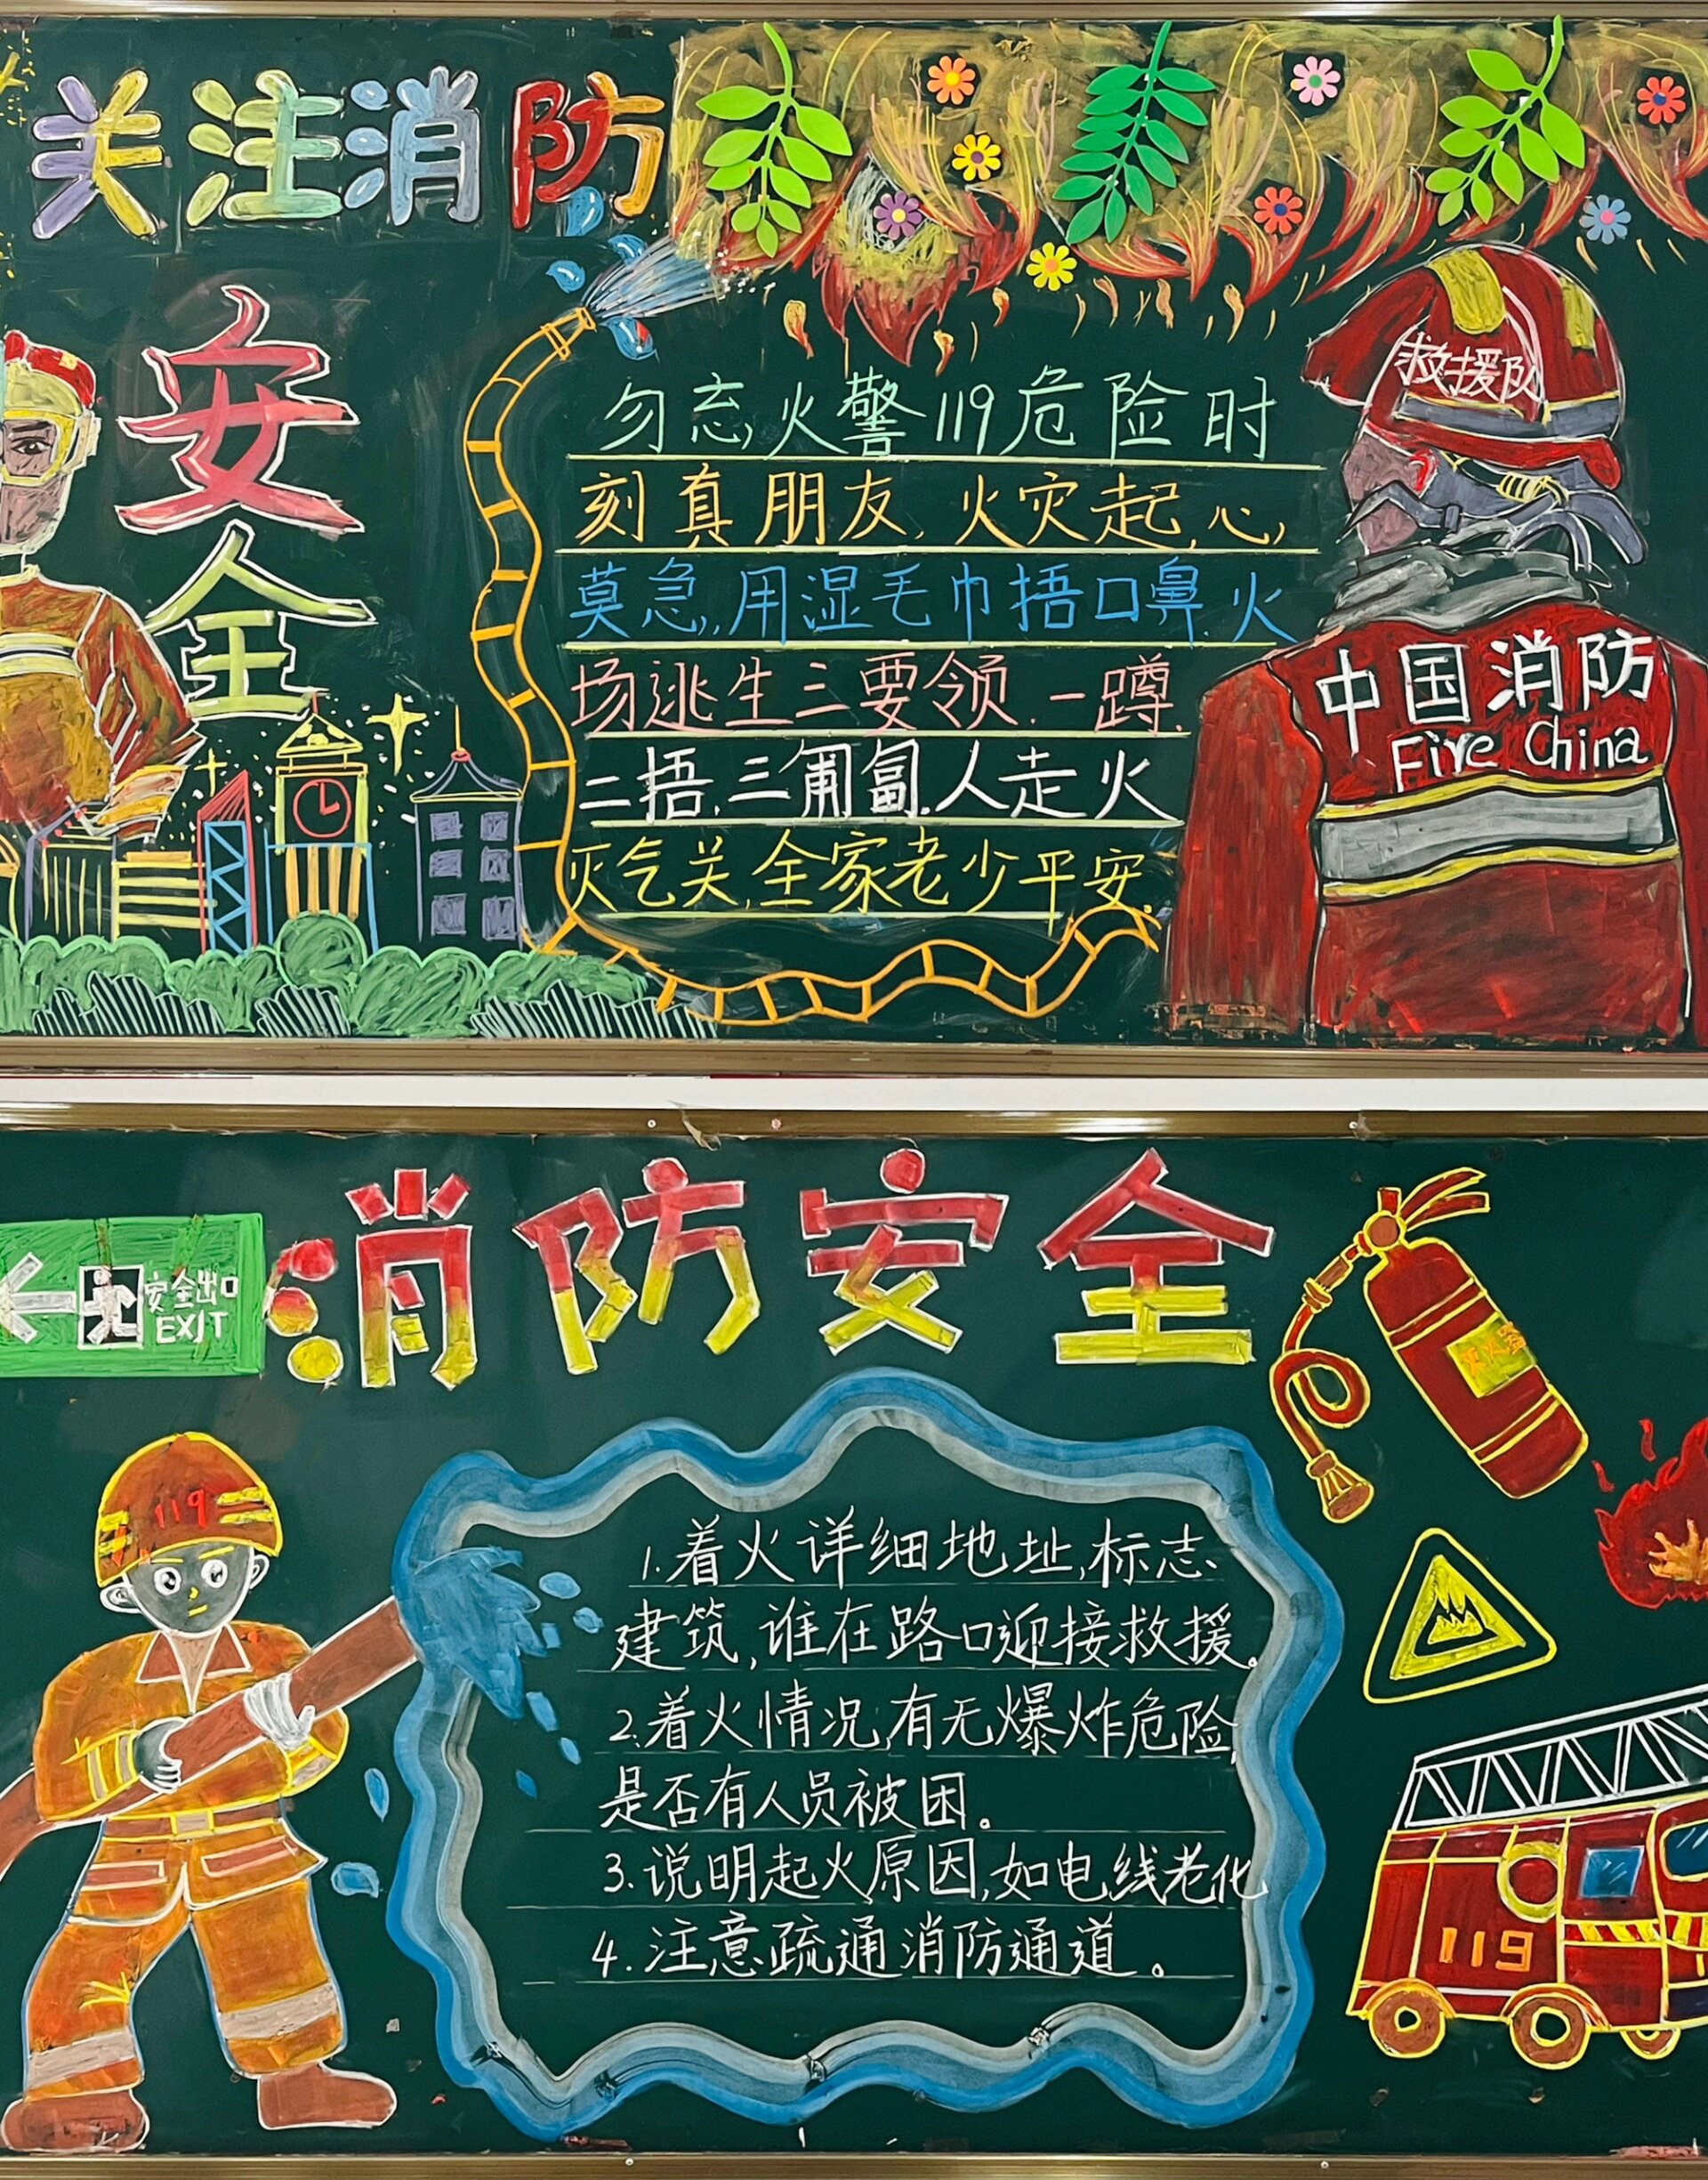 关注消防
安
全
救援队
勿忘火警119危险时
刻真朋友,火灾起,心
莫急,用湿毛巾捂口鼻.火
场逃生三要领.一蹲.
二捂.三匍匐.人走火
灭气关,全家老少平安.
中国消防
Fire China
安全出口
EXIT
消防安全
灭火器
119
1.着火详细地址,标志
建筑,谁在路口迎接救援。
2.着火情况,有无爆炸危险,
是否有人员被困。
3.说明起火原因,如电线老化
4.注意疏通消防通道。
119